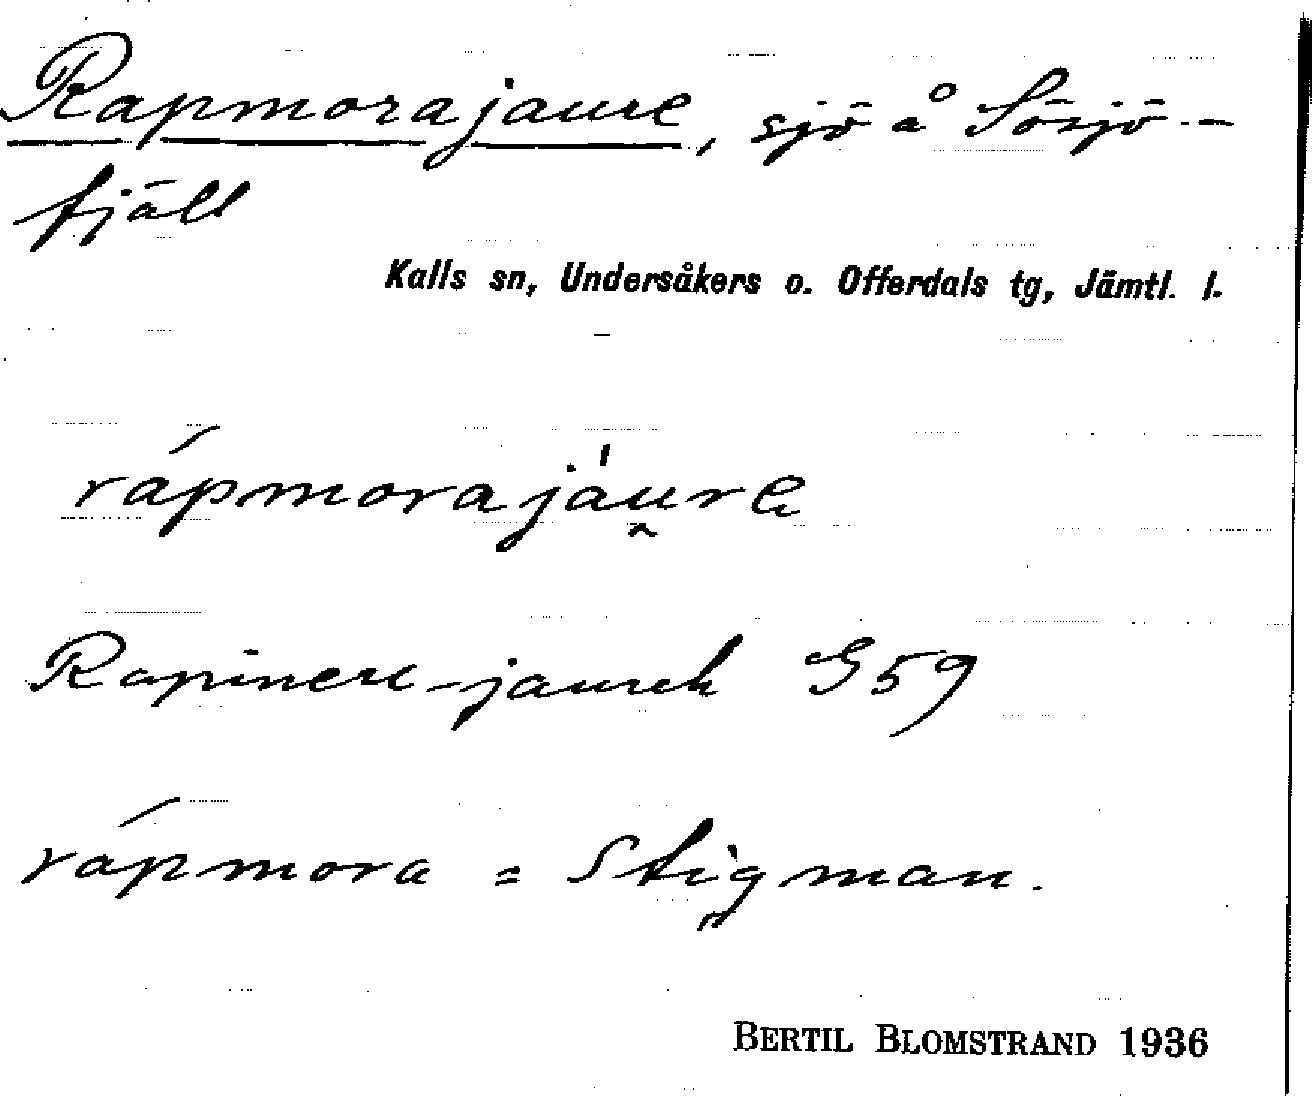 Rapmorajaure, sjö å Sösjö-
fjäll
Kalls sn, Undersåkers o. Offerdals tg, Jämtl. l.
rápmorajáu̯re
Rapinere-jaureh G59
rápmora = Stigman.
BERTIL BLOMSTRAND 1936